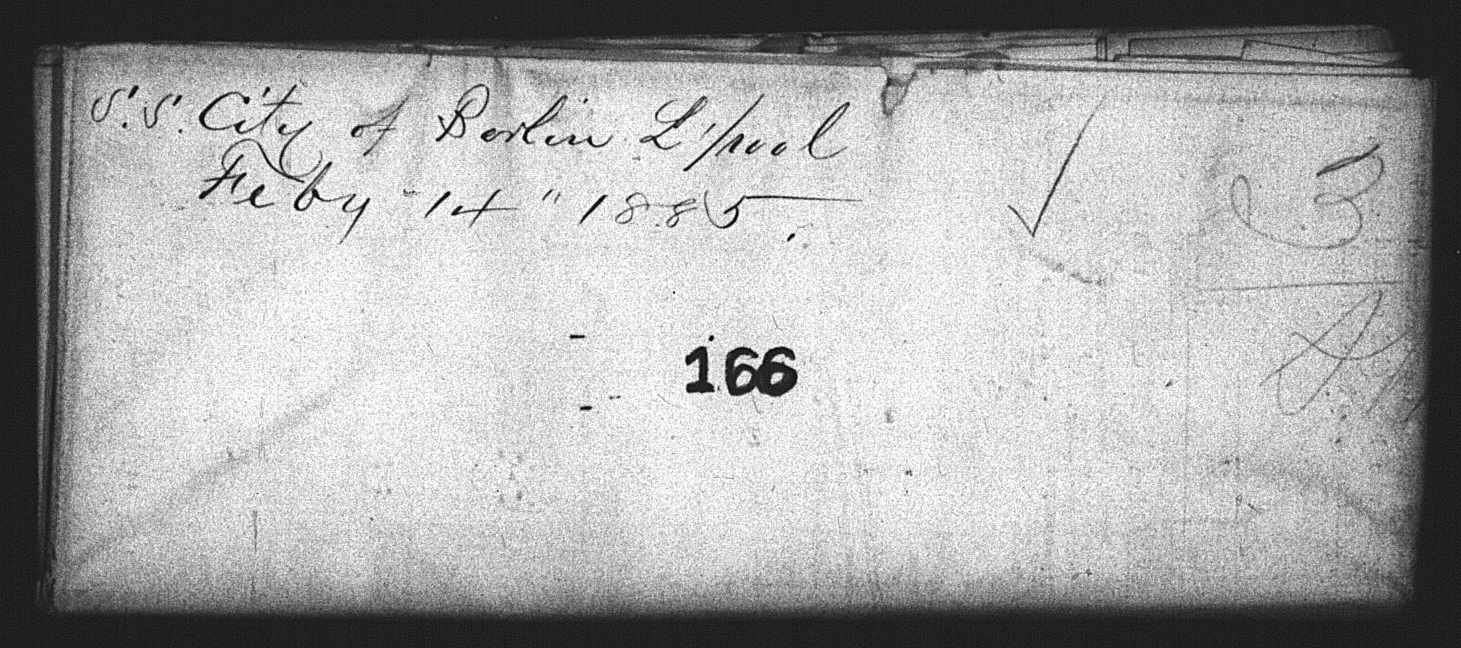 S.S. City of Berlin L'pool
Feby 14" 1885.
3
166